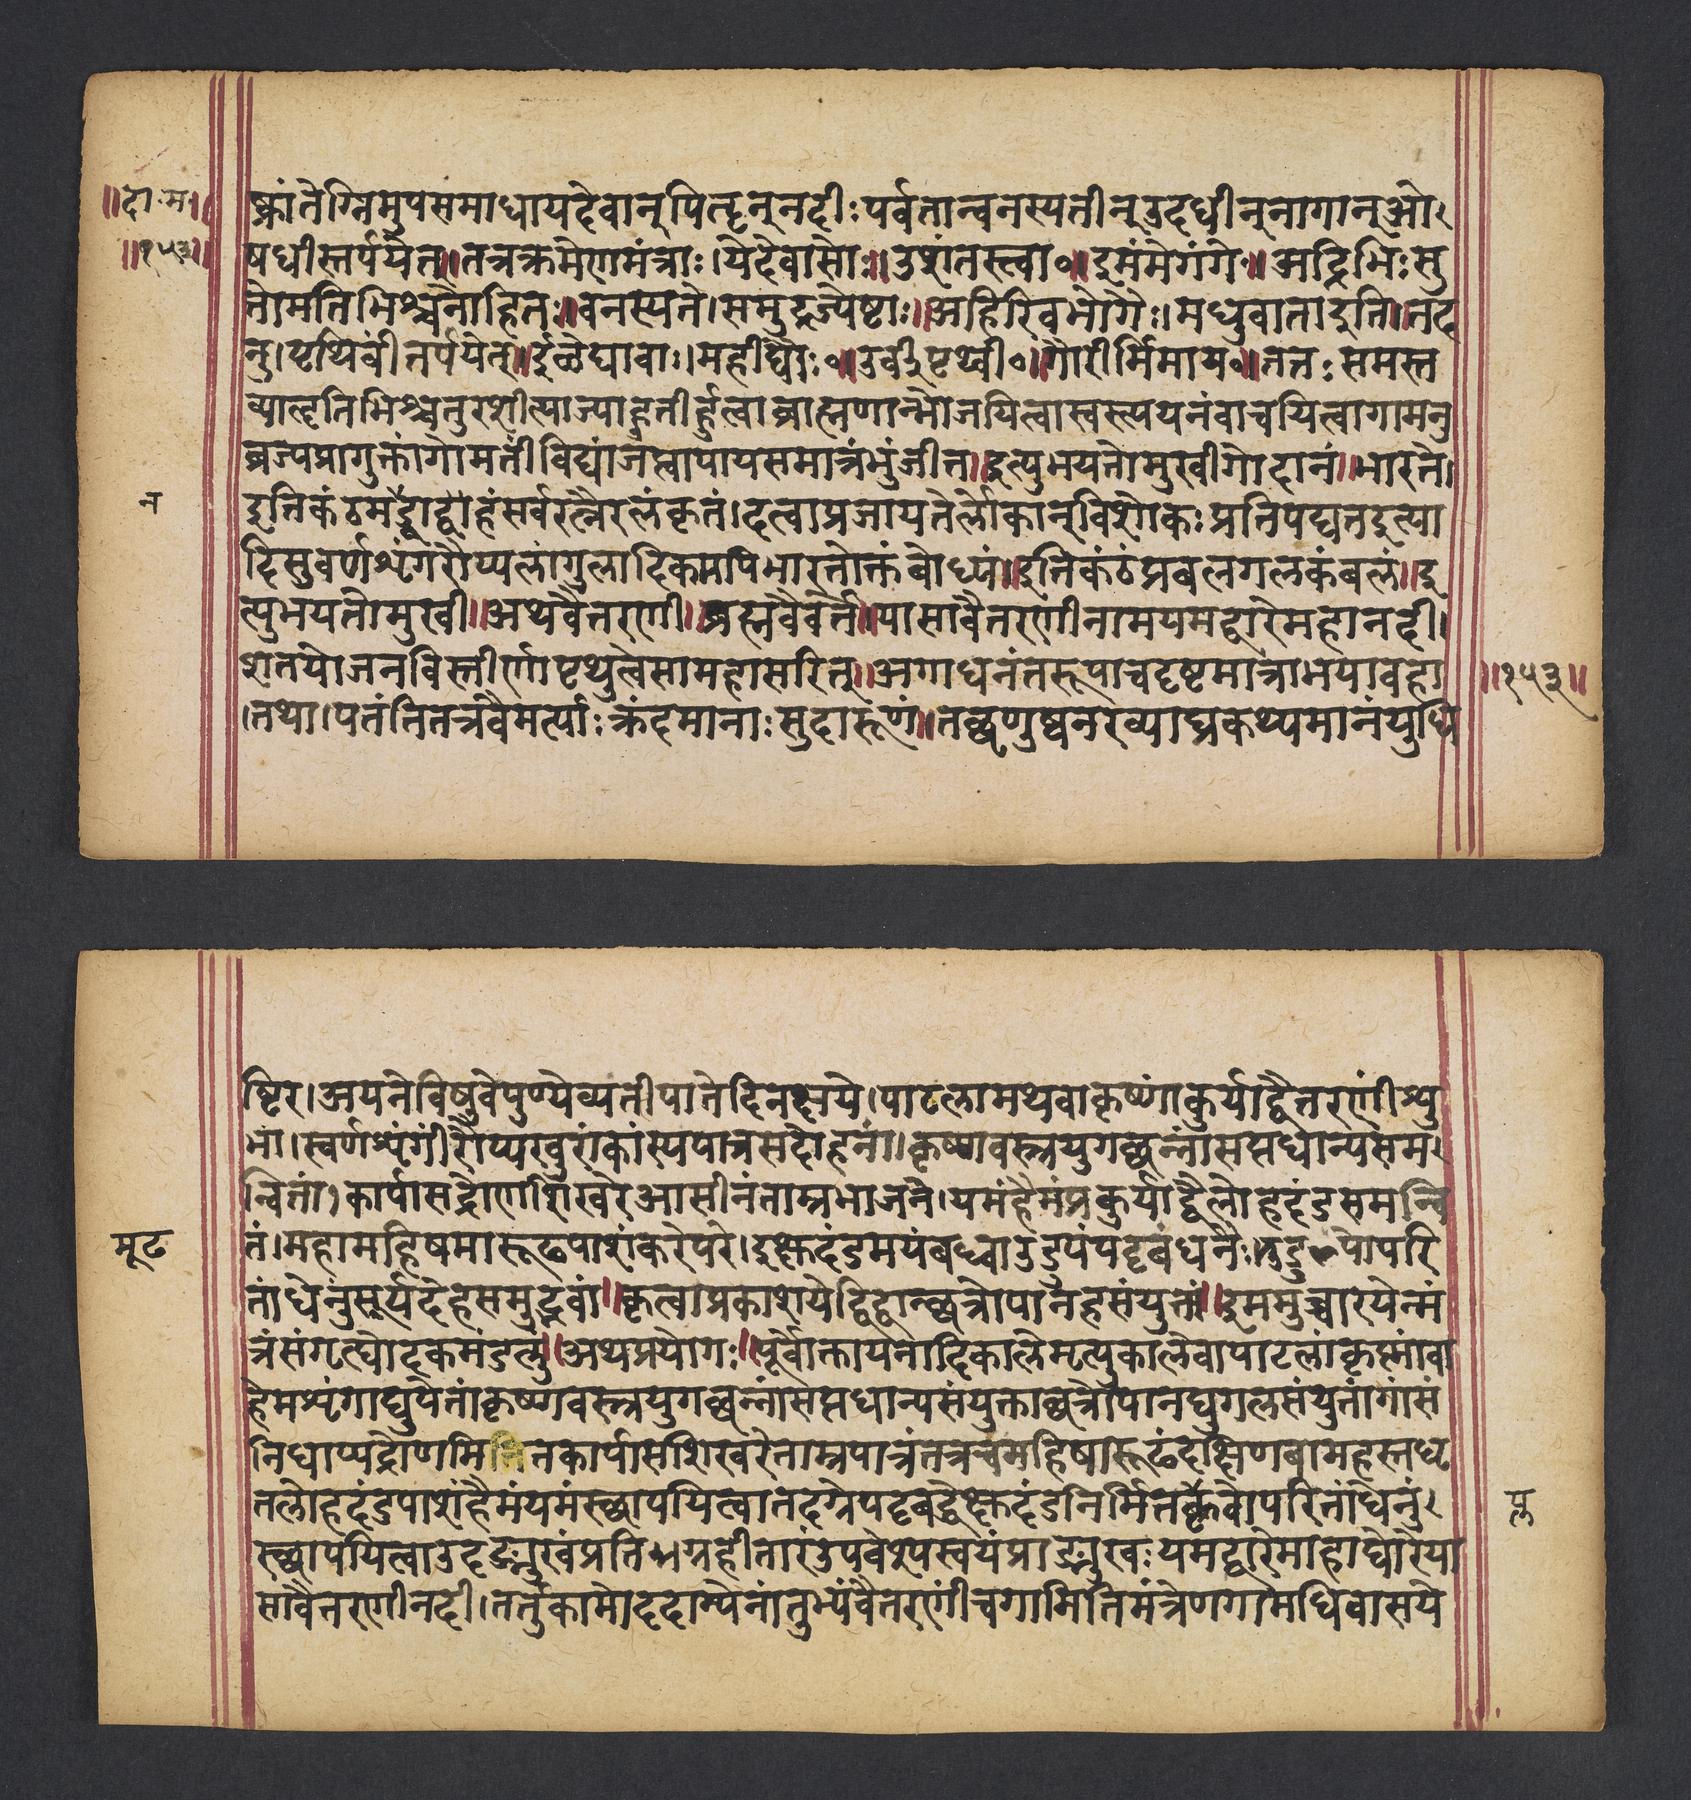 ॥दा॰म॰॥
॥१५३॥
ष्क्रांतेग्निमुपसमाधायदेवान्पितॄन्नदीःपर्वतान्वनस्पतीन्उदधीन्नागान्ओ
षधीस्तर्पयेत्॥तत्रक्रमेणमंत्राः।येदेवासोः॥उशंतस्त्वा०॥इमंमेगंगे०॥अद्रिभिःसु
तोमतिभिश्चनोहितः॥वनस्पते।समुद्रज्येष्टाः॥अहिरिवभोगैः।मधुवाताइति॥तद
नु।पृथिवींतर्पयेत्॥इंळेद्यावा॰।महीद्यौः०॥उर्वीपृथ्वी०॥गौरीर्मिमाय०॥ततःसमस्त
व्याहृतिभिश्चतुरशीत्याज्याहुतीर्हुत्वाब्राह्मणान्भोजयित्वास्वस्त्ययनंवाचयित्वागामनु
व्रज्यप्रागुक्तांगोमतींविद्यांजप्त्वापायसमान्नंभुंजीत॥इत्युभयतोमुखीगोदानं॥भारते।
न
इतिकंठमद्भाद्वाहंसर्वरत्नैरलंकृतं।दत्वाप्रजायतेर्लोकान्विशोकःप्रतिपद्यतइत्या
दिसुवर्णशृंगरौप्यलांगुलादिकमपिभारतोक्तंबोध्यं॥इतिकंठंप्रबलगलकंबलं॥इ
त्युभयतोमुखी॥अथवैतरणी॥ब्रह्मवैवर्ते॥यासावैतरणीनामयमद्वारेमहानदी।
शतयोजनविस्तीर्णापृथुत्वेसामहासरित्॥अगाधनंतरूपाचदृष्टमात्राभयावहा
॥१५३॥
।तथा।पतंतितत्रवैमर्त्याःक्रंदमानाःसुदारूणं॥तछृणुष्वनरव्याघ्रकथ्यमानंयुधि
ष्टिर।अयनेविषुवेपुण्येव्यतीपातेदिनक्षये।पाटलामथवाकृष्णांकुर्याद्वैतरणींशु
भा।स्वर्णशृंगींरौप्यखुरांकांस्यपात्रसदोहनां।कृष्णवस्त्रयुगछन्नांसप्तधान्यसम
न्वितां।कार्पासद्रोणशिखरेआसीनंताम्रभाजने।यमंहैमंप्रकुर्याद्वैलोहदंडसमन्वि
मूढ
तं।महामहिषमारूढपाशंकरेपरे।इक्षुदंडमयंबध्वाउडुपंपट्टबंधनैः।उडुपोपरि
तांधेनुंसूर्यदेहसमुद्भवां॥कृत्वाप्रकाशयेद्विद्वान्छत्रोपानहसंयुतां॥इममुच्चारयेन्मं
त्रंसंगृह्योदकमंडलुं॥अथप्रयोगः॥पूर्वोक्तायनादिकालेमृत्युकालेवापाटलांकृष्णांवा
हेमशृंगाद्युपेतांकृष्णवस्त्रयुगछन्नांसप्तधान्यसंयुक्ताछत्रोपानद्युगलसंयुतांगांसं
निधाप्यद्रोणमितकार्पासशिखरेताम्रपात्रंतत्रचमहिषारूढंदक्षिणवामहस्तधृ
तलोहदंडपाशंहैमंयमंस्थापयित्वातदग्रेपट्टबद्धेक्षुदंडनिर्मितर्प्लवोपरितांधेनुं
प्ल
स्थापयित्वाउदङ्मुखंप्रतिग्रहीतारंउपवेश्यस्वयंप्राङ्मुखःयमद्वारेमाहाघोरेया
सावैतरणीनदी।तर्तुकामोददाम्येनांतुभ्यंवैतरणींचगामितिमंत्रेणगामधिवासये